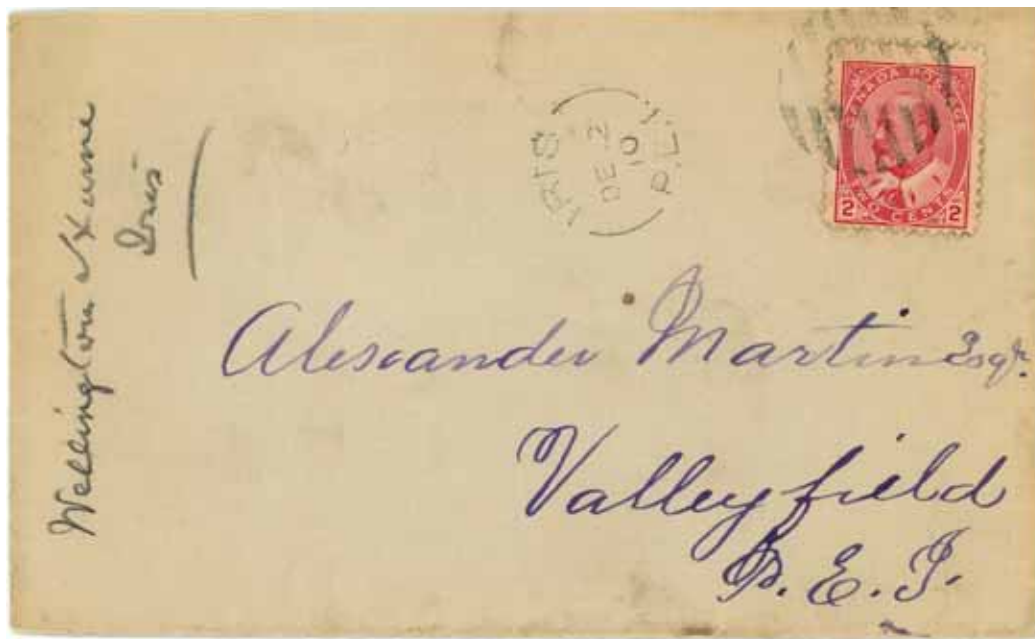 Wellington Hume
Iris
IRIS
DE 2
10
P.E.I.
CANADA POSTAGE
TWO CENTS
2 2
Alexander Martin Esqr.
Valleyfield
P. E. I.